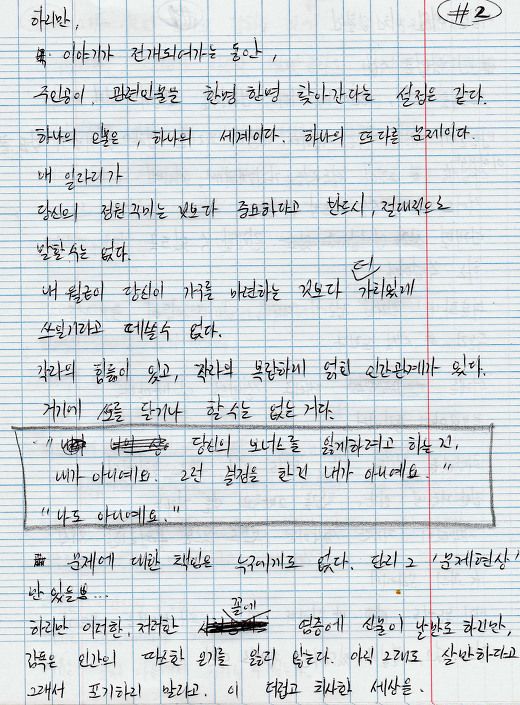 #2
하지만,
이야기가 전개되어가는 동안,
주인공이, 관련인물을 한명 한명 찾아간다는 설정은 같다.
하나의 모습은, 하나의 세계이다. 하나의 또다른 문제이다.
내 일자리가
당신의 정원 꾸미는 것보다 중요하다고 반드시, 절대적으로
말할 수는 없다.
내 월급이 당신이 가구를 마련하는 것보다 더 가치있게
쓰일거라고 떼쓸 수 없다.
각자의 힘듦이 있고, 각자의 복잡하게 얽힌 인간관계가 있다.
거기에 토를 달거나 할 수는 없는 거다.
" 당신의 보너스를 잃게하려고 하는 건,
내가 아니예요. 그런 결정을 한건 내가 아니예요. "
" 나도 아니예요. "
문제에 대한 책임은 누구에게도 없다. 단지 그 '문제현상'
만 있을뿐...
하지만 이러한, 저러한 꼴에 염증에 신물이 날만도 하지만,
감독은 인간의 따스한 온기를 잃지 않는다. 아직 그래도 살만하다고
그래서 포기하지 말라고. 이 더럽고 치사한 세상을.